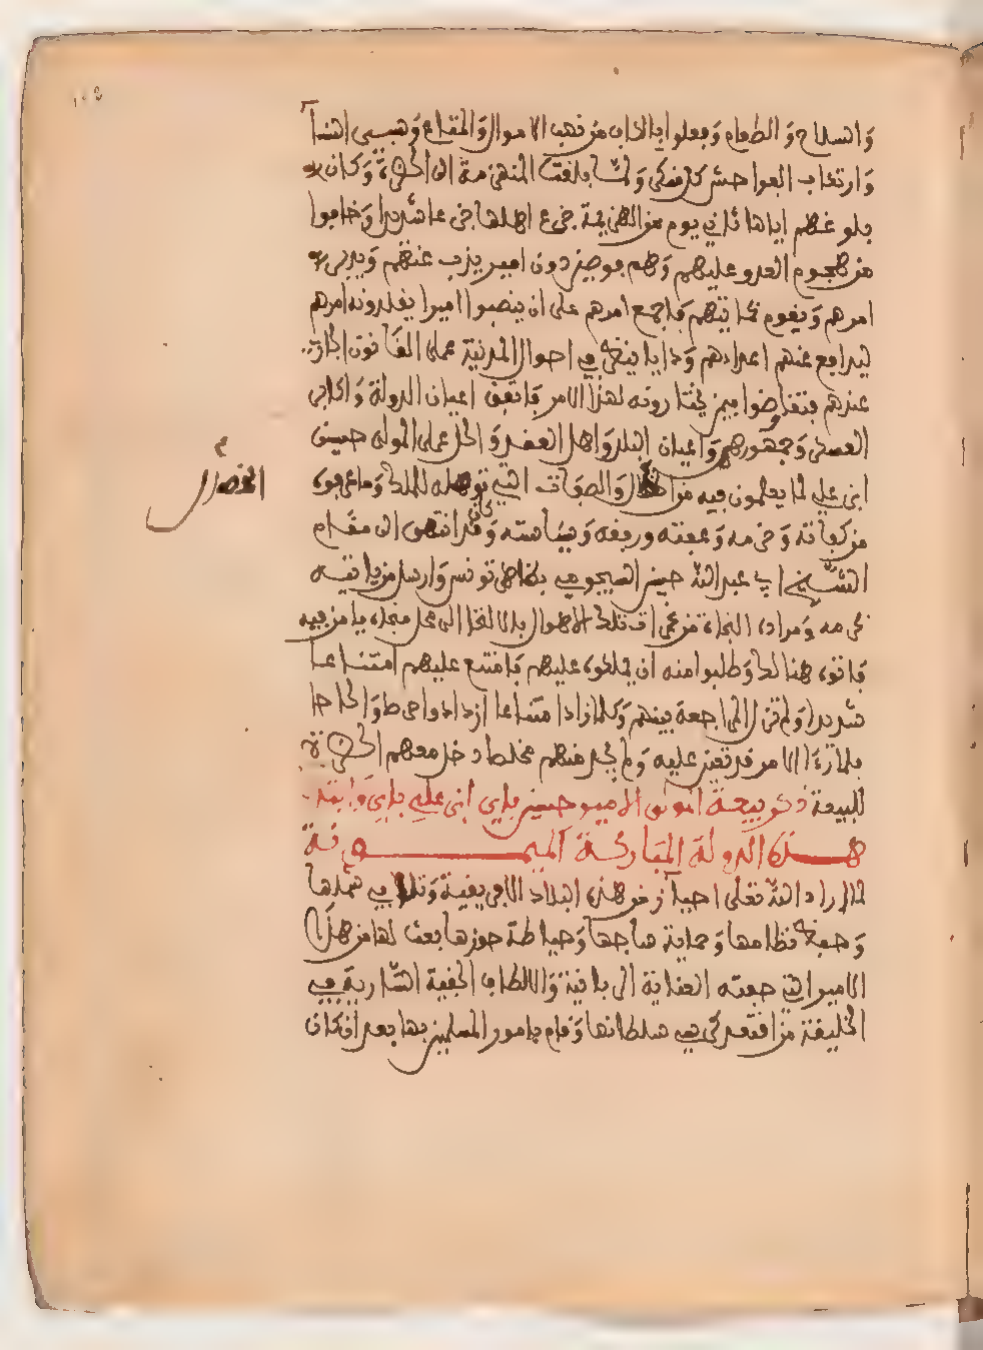 والسلاح والطعام وفعلوا بالكاف من نهب الاموال والمتاع وسبي النسا
وارتكاب الفواحش كل منكر ولما بلغت المنهزمة الى الحضرة وكان
بلوغهم اياها ثاني يوم من الهزيمة جزع اهلها جزعا شديدا وخافوا
من هجوم العدو عليهم وهم فوضى دون امير يذب عنهم ويدبر
امرهم ويقوم بحمايتهم فاجمع امرهم على ان ينصبوا اميرا يقلدونه امرهم
ليدافع عنهم اعداءهم وذا يا ينظر في احوال المدينة على القانون الجاري
عندهم فتفاوضوا فيمن يختارونه لهذا الامر فاتفق اعيان الدولة واكابر
العسكر وجمهورهم واعيان البلد واهل العقد والحل على المولى حسين
ابن علي لما يعلمون فيه من الخصال والصفات التي توهله للملك وما عرفوه
من كفايته وحزمه وعفته ورفقه وسياسته وكان قد انتهى الى مقام
الشيخ ابي عبد الله حسين السيجومي بظاهر تونس وارسل من ياتيه
بحرمه ومراده النجاة من غمرات تلك الاهوال بالالتجا الى محل منجاه يامن فيه
فاتوه هنالك وطلبوا منه ان يملكوه عليهم فامتنع عليهم امتناعا
شديدا ولم تزل المراجعة بينهم وكلما زاد امتناعا ازدادوا حرصا والحاحا
فلما رءا الامر قد تعين عليه ولم يجد منهم مخلصا دخل معهم الحضرة
للبيعة ذكر بيعة المولى الامير حسين باي ابن علي باي وابتداء
هذه الدولة المباركة الميمونة
لما اراد الله تعلى احياء رمق هذه البلاد الافريقية وتلافي شملها
وحفظ نظامها وحماية ساحها وحياطة حوزها بعث لها من هذا
الامير الذي حفته العناية الربانية والالطاف الخفية السارية في
الخليقة من اقتعد كرسي سلطانها وقام بامور المسلمين بها بعد ان كان
الخصال